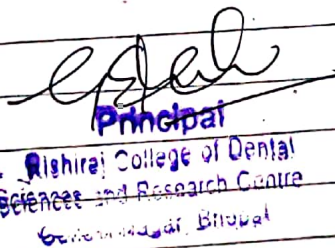 Principal
Rishiraj College of Dental
Sciences and Research Centre
Bhopal